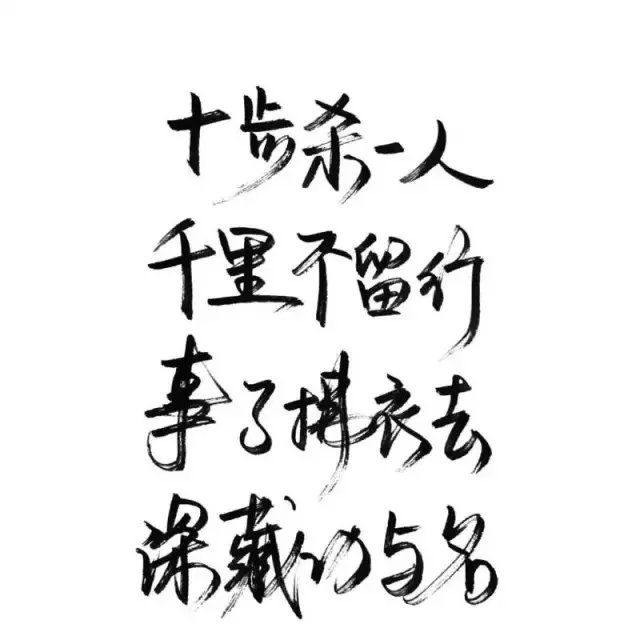 十步杀一人
千里不留行
事了拂衣去
深藏功与名